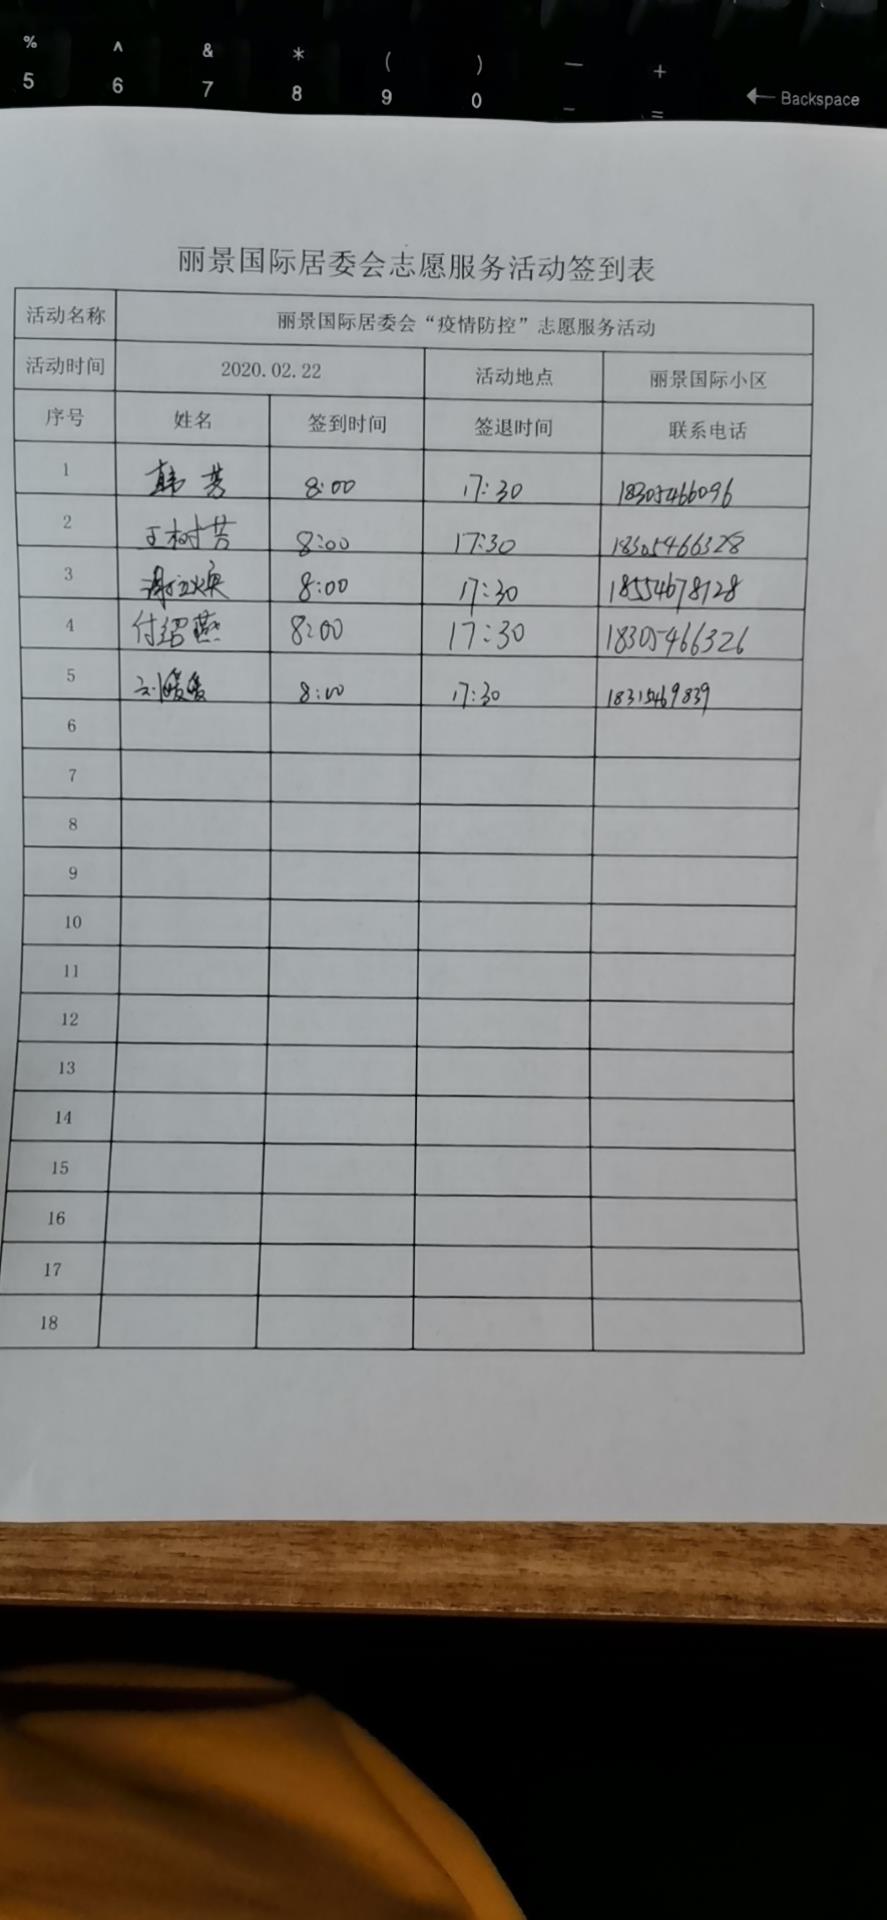 % ^ & * ( ) — +
5 6 7 8 9 0 - = ← Backspace
丽景国际居委会志愿服务活动签到表
活动名称 丽景国际居委会“疫情防控”志愿服务活动
活动时间 2020.02.22 活动地点 丽景国际小区
序号 姓名 签到时间 签退时间 联系电话
1 韩芳 8:00 17:30 18305466096
2 王树芳 8:00 17:30 18305466328
3 8:00 17:30 18554678128
4 付绍燕 8:00 17:30 18305466326
5 刘媛媛 8:00 17:30 18315469839
6
7
8
9
10
11
12
13
14
15
16
17
18